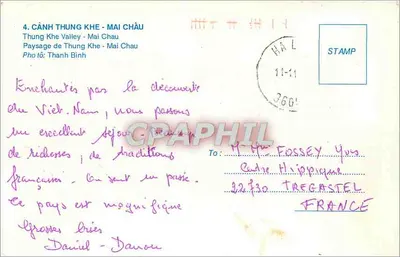 4. CẢNH THUNG KHE - MAI CHÂU
Thung Khe Valley - Mai Chau
Paysage de Thung Khe - Mai Chau
Photo: Thanh Bình
STAMP
HA L
11-11
Enchantés par la découverte
du Viet-Nam, nous passons
un excellent séjour
de richesses, de traditions
françaises. On sent un passé.
Ce pays est magnifique
Grosses bises
Daniel - Danou
CPARAMA
To: M. Mme FOSSEY Yves
Centre Hippique
22730 TREGASTEL
FRANCE